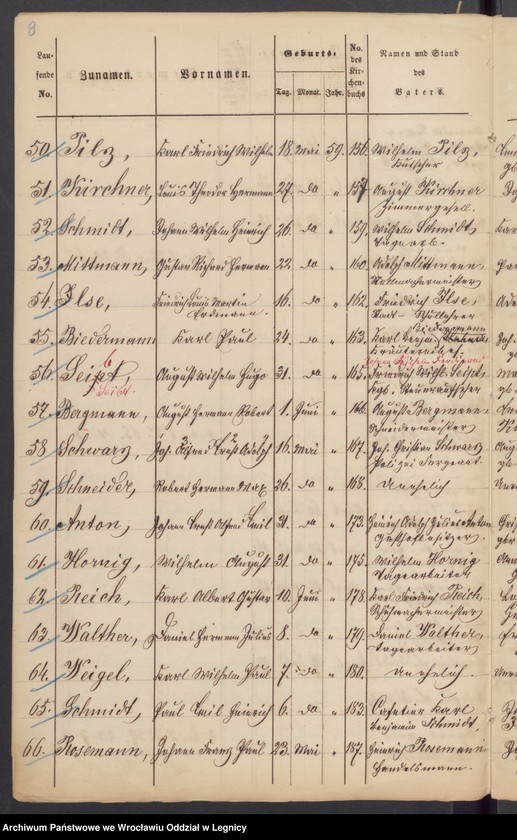 8
Laufende No. Zunamen. Vornamen. Geburts- Tag. Monat. Jahr. No. des Kirchenbuchs Namen und Stand des Vaters.
50. Pilz, Karl Friedrich Wilhelm 18. Mai 59. 156. Wilhelm Pilz,
Kutscher
51. Kirchner, Louis Theodor Hermann 27. do " 157 August Kirchner
Zimmergesell.
52. Schmidt, Johann Wilhelm Heinrich 26. do " 159. Wilhelm Schmidt,
Tagearb.
53. Mittmann, Gustav Richard Hermann 22. do " 160. Adolph Mittmann,
Stellmachermeister
54. Ilse, Friedrich Louis Martin 16. do " 162. Friedrich Ilse,
Erdmann.
55. Biedermann Karl Paul 24. do " 163. Karl Biedermann
56. Seipt August Wilhelm Hugo 31. do " 165. Friedrich Wilh. Seipt
Seibt.
Kgl. Steueraufseher
57. Bergmann, August Hermann Robert 1. Juni " 166. August Bergmann
Schneidermeister
58. Schwarz, Joh. Alfred Ernst Adolph 16. Mai " 167. Joh. Christian Schwarz
Polizei Sergeant.
59. Schneider, Robert Hermann Max 26. do " 168. Unehelich
60. Anton, Johann Ernst Alfred Emil 21. do " 173. Heinrich Adolph Julius Anton
Gasthofbesitzer.
61. Hornig, Wilhelm August 31. do " 175. Wilhelm Hornig
Tagearbeiter
62. Reich, Karl Albert Gustav 10. Juni " 178. Karl Friedrich Reich,
Schuhmachermeister
63. Walther, Daniel Hermann Julius 8. do " 179. Daniel Walther,
Tagearbeiter
64. Weigel, Karl Wilhelm Paul 7. do " 180. Unehelich.
65. Schmidt, Paul Emil Heinrich 6. do " 183. Cafetier Karl
Benjamin Schmidt,
66. Rosemann, Johann Franz Paul 23. Mai " 187. Heinrich Rosemann
Handelsmann.
Archiwum Państwowe we Wrocławiu Oddział w Legnicy